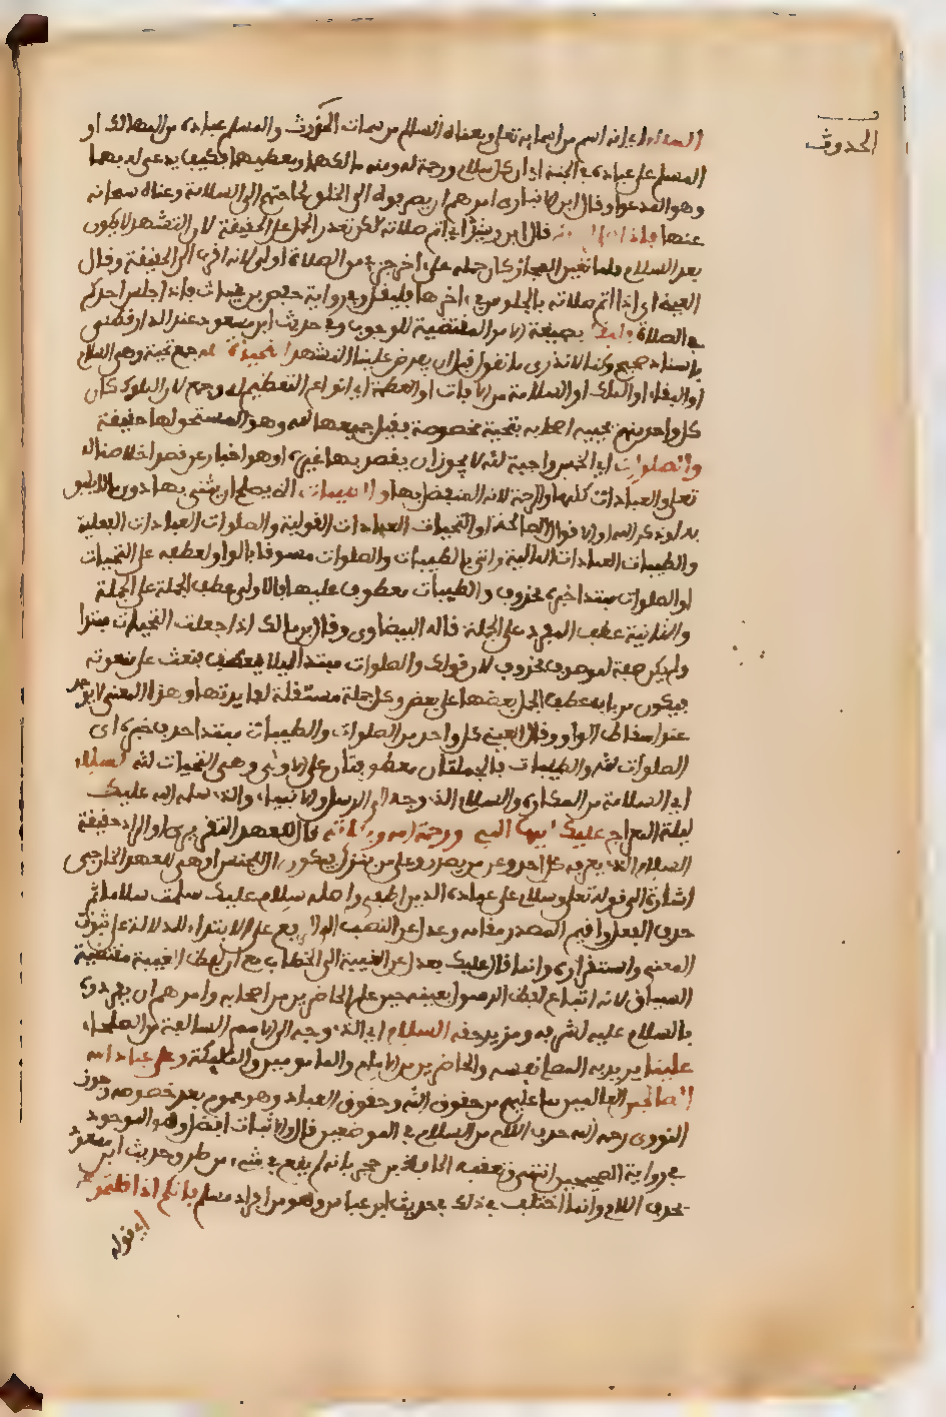 السلام اي انه اسم من اسمايه تعلى ومعناه السلام من سمات الحدوث والمسلم عباده من المهالك او
المسلم على عباده في الجنة او ان كل سلام ورحمة له ومنه وهو مالكهما ومعطيهما فكيف يدعى له بهما
وهو المدعو وقال ابن الانباري امرهم ان يصرفوه الى الخلق لحاجتهم الى السلامة وغناه سبحانه
عنها فاذا قال ابن رشيد اي اتم صلاته لكن تعذر الحمل على الحقيقة لان التشهد لا يكون
بعد السلام فلما تعين المجاز كان حمله على اخر جزء من الصلاة اولى لانه اقرب الى الحقيقة وقال
العيني اي اذا اتم صلاته بالجلوس في اخرها فليقل وفي رواية حفص بن غياث فاذا جلس احدكم
في الصلاة فليقل بصيغة الامر المقتضية للوجوب وفي حديث ابن مسعود عند الدارقطني
باسناد صحيح وكنا لا ندري ما نقول قبل ان يفرض علينا التشهد التحيات لله جمع تحية وهي السلام
او البقاء او الملك او السلامة من الافات او العظمة اي انواع التعظيم له وجمع لان الملوك كان
كل واحد منهم يحييه اصحابه بتحية مخصوصة فقيل جميعها لله وهو المستحق لها حقيقة
والصلوات اي الخمس واجبة لله لا يجوز ان يقصد بها غيره او هو اخبار عن قصد اخلاصنا له
تعلى والعبادات كلها او الرحمة لانه المتفضل بها والطيبات التي يصلح ان يثنى بها دون ما لا يليق
به او ذكر الله او الاقوال الصالحة او التحيات العبادات القولية والصلوات العبادات الفعلية
والطيبات العبادات المالية واتى بالطيبات والصلوات مسوقا بالواو لعطفه على التحيات
او الصلوات مبتدا خبره محذوف والطيبات معطوف عليها فالاولى عطف الجملة على الجملة
والثانية عطف المفرد على الجملة قاله البيضاوي وقال ابن مالك اذا جعلت التحيات مبتدا
ولم يكن صفة لموصوف محذوف كان قولك والصلوات مبتدا ليلا يعطف نعت على منعوته
فيكون من باب عطف الجمل بعضها على بعض وكل جملة مستقلة لفايدتها وهذا المعنى لا يوجد
عند اسقاط الواو وقال العيني كل واحد من الصلوات والطيبات مبتدا حذف خبره اي
الصلوات لله والطيبات فالجملتان معطوفتان على الاولى وهي التحيات لله السلام
اي السلامة من المكاره والسلام الذي وجه الى الرسل والانبياء والذي سلمه الله عليك
ليلة المعراج عليك ايها النبي ورحمة الله وبركاته فال للعهد التقديري او المراد حقيقة
السلام الذي يعرفه كل احد وعن من يصدر وعلى من ينزل فتكون ال للجنس او هي للعهد الخارجي
اشارة الى قوله تعلى وسلام على عباده الذين اصطفى واصله سلام عليك سلمت سلاما ثم
حذف الفعل واقيم المصدر مقامه وعدل عن النصب الى الرفع على الابتداء للدلالة على ثبوت
المعنى واستقراره وانما قال عليك بعدل عن الغيبة الى الخطاب مع ان لفظ الغيبة مقتضية
السياق لانه اتباع لفظ الرسول بعينه حين علم الحاضرين من اصحابه وامرهم ان يفردوه
بالسلام عليه لشرفه ومزيد حقه السلام اي الذي وجه الى الامم السالفة من الصلحاء
علينا يريد به المصلي نفسه والحاضرين من الامام والمامومين والمليكة وعلى عباد الله
الصالحين القائمين بما عليهم من حقوق الله وحقوق العباد وهو عموم بعد خصوص وجوز
النووي رحمه الله حذف اللام من السلام في الموضعين قال والاثبات افضل وهو الموجود
في رواية الصحيحين انتهى وتعقبه الحافظ بن حجر بانه لم يقع في شيء من طرق حديث ابن مسعود
بحذف اللام وانما اختلف في ذلك في حديث ابن عباس وهو من افراد مسلم فانكم اذا قلتموها
اي قوله
الحدوث